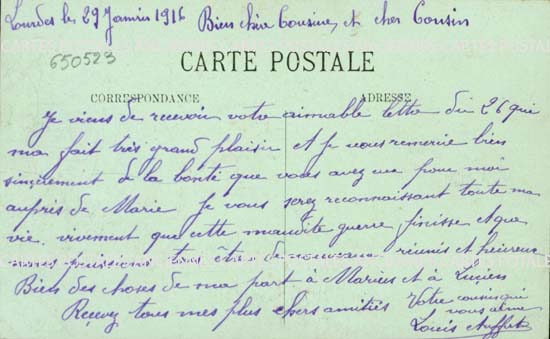 Lourdes le 29 Janvier 1916 Bien chère Cousine, et cher Cousin
650523
CARTE POSTALE
CORRESPONDANCE
ADRESSE
Je viens de recevoir votre aimable lettre du 26 qui
ma fait très grand plaisir et je vous remercie bien
sincèrement de la bonté que vous avez eue pour moi
auprès de Marie Je vous serez reconnaissant toute ma
vie. vivement que cette maudite guerre finisse et que
nous puissions tous être de nouveau réunis et heureux
Bien des choses de ma part à Marius et à Lucien
Recevez tous mes plus chers amitiés
Votre cousin qui
vous aime
Louis